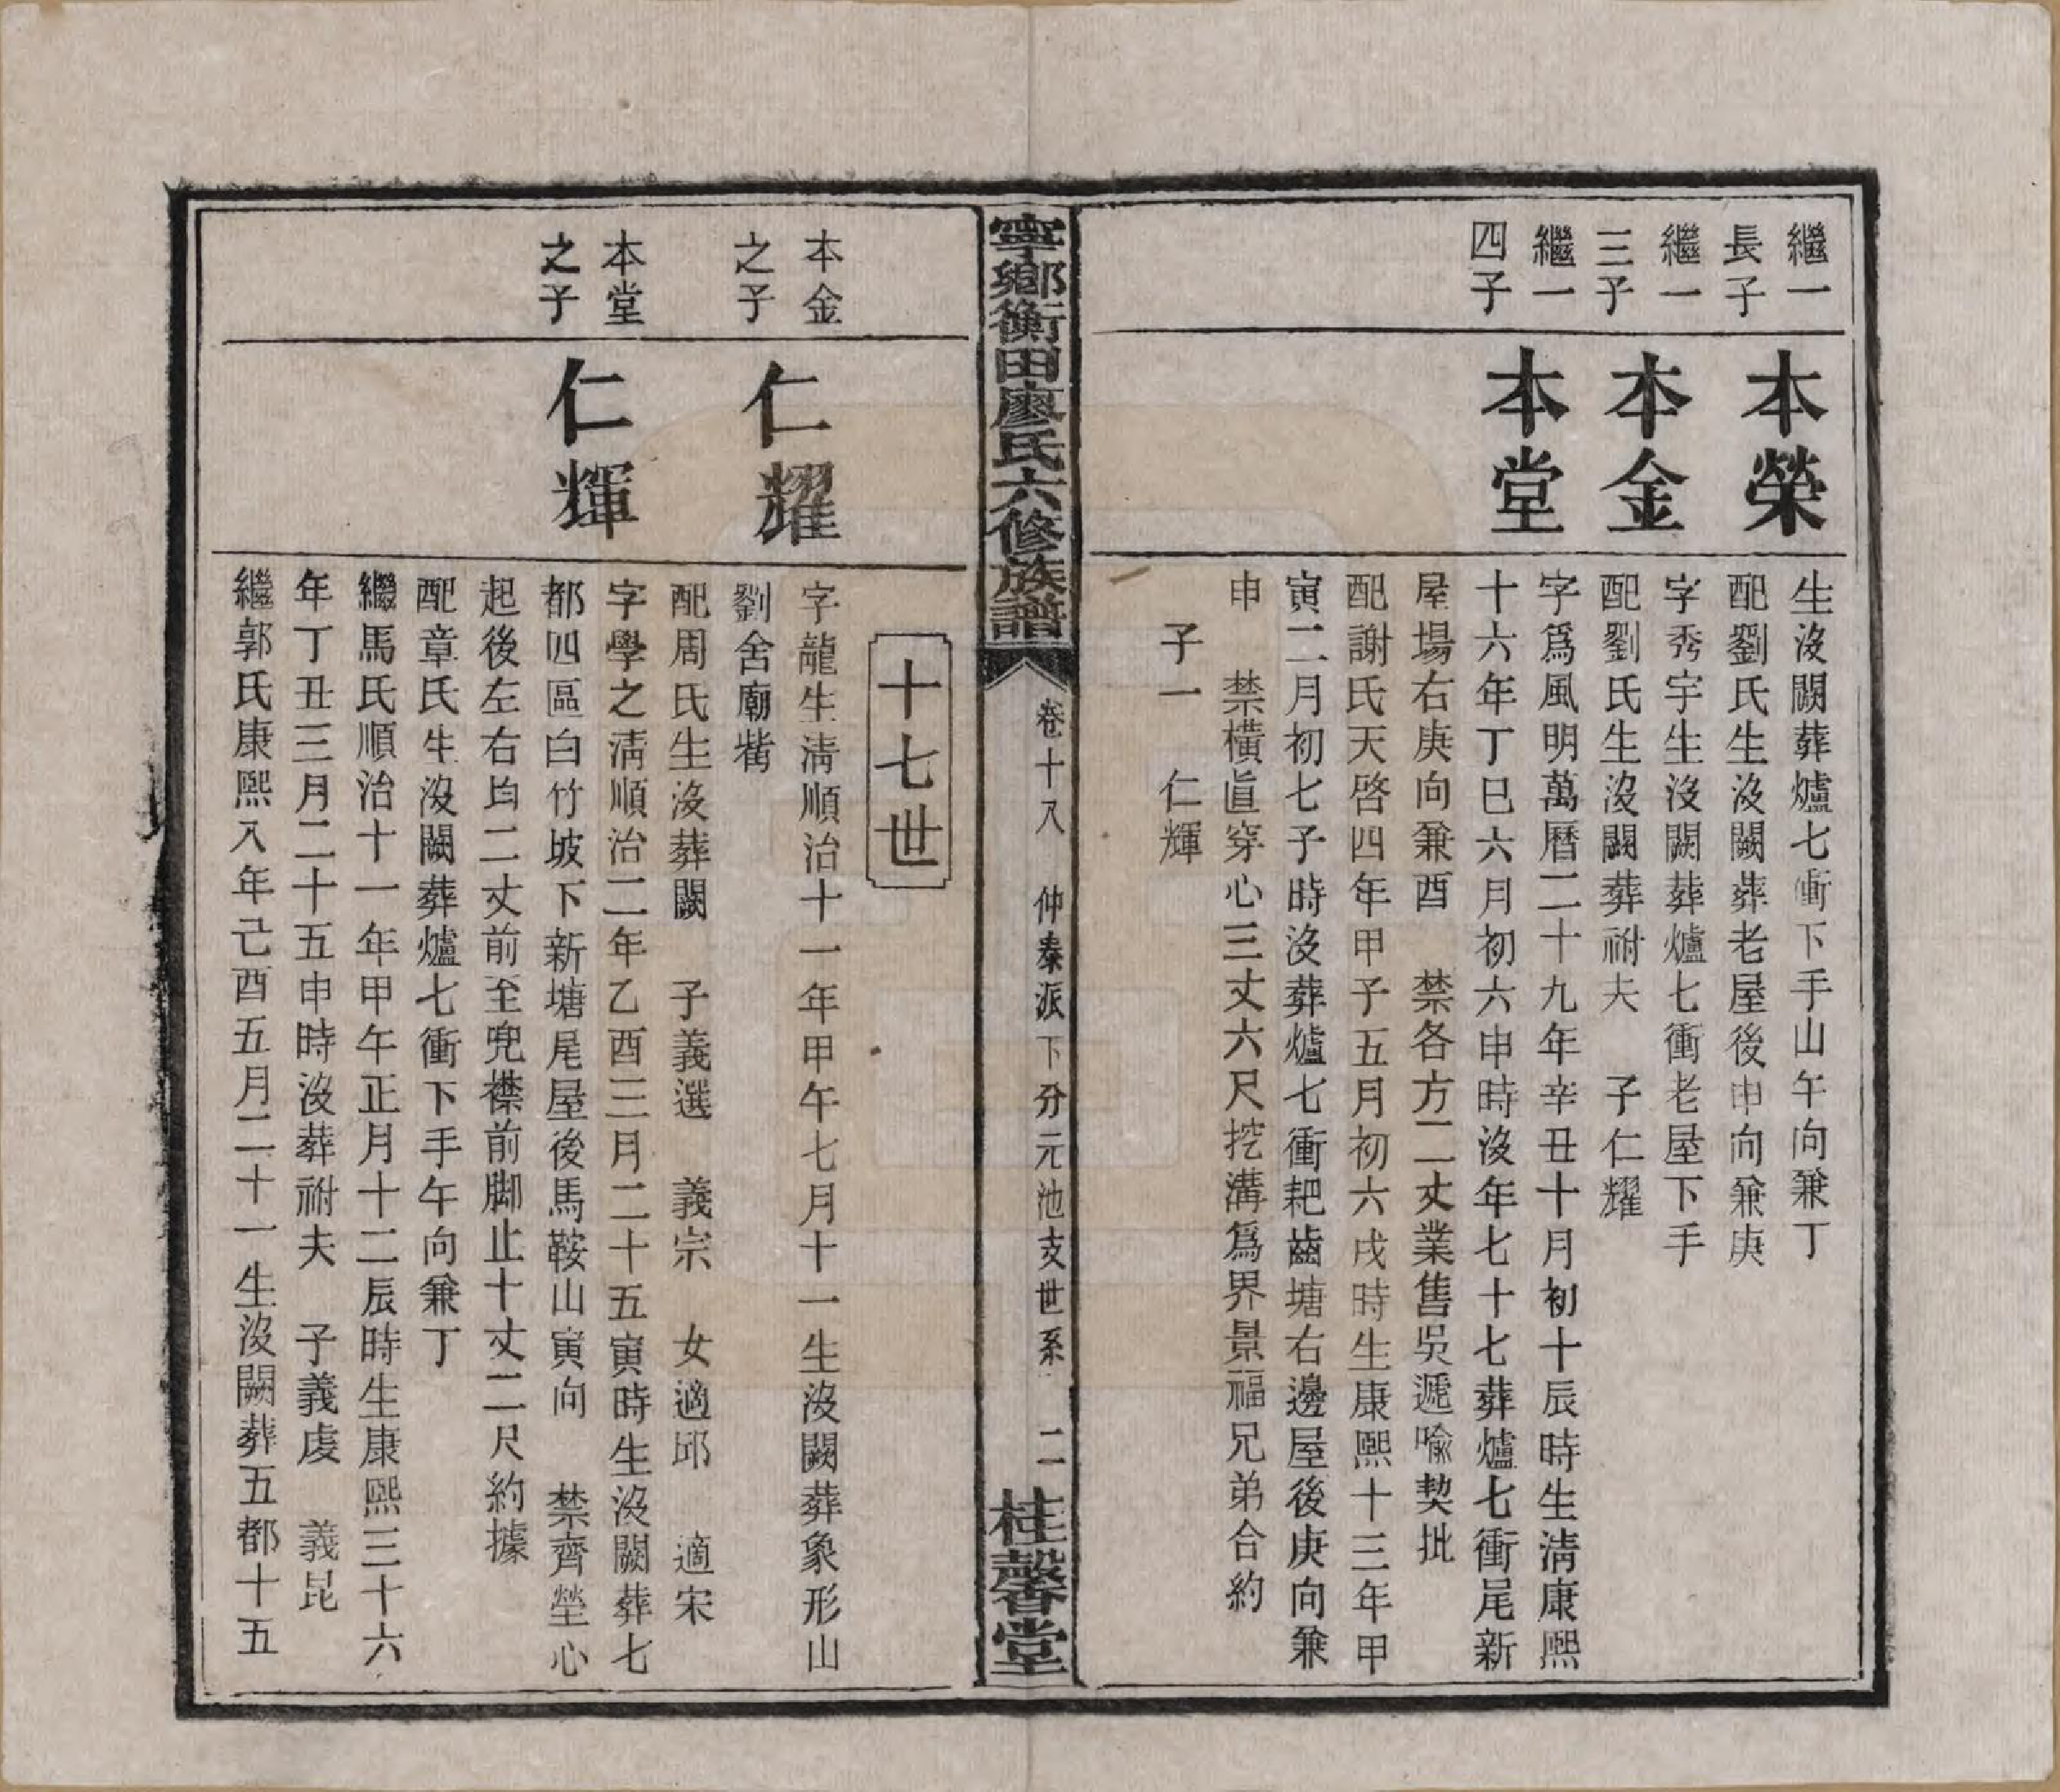 繼一
長子
本榮
生沒闕葬爐七衝下手山午向兼丁
配劉氏生沒闕葬老屋後申向兼庚
繼一
三子
本金
字秀宇生沒闕葬爐七衝老屋下手
配劉氏生沒闕葬祔夫　子仁耀
繼一
四子
本堂
字爲風明萬曆二十九年辛丑十月初十辰時生淸康熙
十六年丁巳六月初六申時沒年七十七葬爐七衝尾新
屋場右庚向兼酉　禁各方二丈業售吳遞喻契批
配謝氏天啓四年甲子五月初六戌時生康熙十三年甲
寅二月初七子時沒葬爐七衝耙齒塘右邊屋後庚向兼
申　禁橫眞穿心三丈六尺挖溝爲界景福兄弟合約
子一　仁輝
寧鄉衡田廖氏六修族譜
卷十八　仲秦派下分元池支世系　二
桂馨堂
十七世
本金
之子
仁耀
字龍生淸順治十一年甲午七月十一生沒闕葬象形山
劉舍廟觜
配周氏生沒葬闕　子義選　義宗　女適邱　適宋
本堂
之子
仁輝
字學之淸順治二年乙酉三月二十五寅時生沒闕葬七
都四區白竹坡下新塘尾屋後馬鞍山寅向　禁齊塋心
起後左右均二丈前至兜襟前脚止十丈二尺約據
配章氏生沒闕葬爐七衝下手午向兼丁
繼馬氏順治十一年甲午正月十二辰時生康熙三十六
年丁丑三月二十五申時沒葬祔夫　子義虔　義昆
繼郭氏康熙八年己酉五月二十一生沒闕葬五都十五